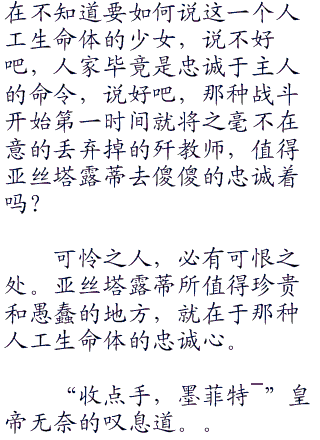 在不知道要如何说这一个人
工生命体的少女，说不好
吧，人家毕竟是忠诚于主人
的命令，说好吧，那种战斗
开始第一时间就将之毫不在
意的丢弃掉的歼教师，值得
亚丝塔露蒂去傻傻的忠诚着
吗？
可怜之人，必有可恨之
处。亚丝塔露蒂所值得珍贵
和愚蠢的地方，就在于那种
人工生命体的忠诚心。
“收点手，墨菲特¯”皇
帝无奈的叹息道。。